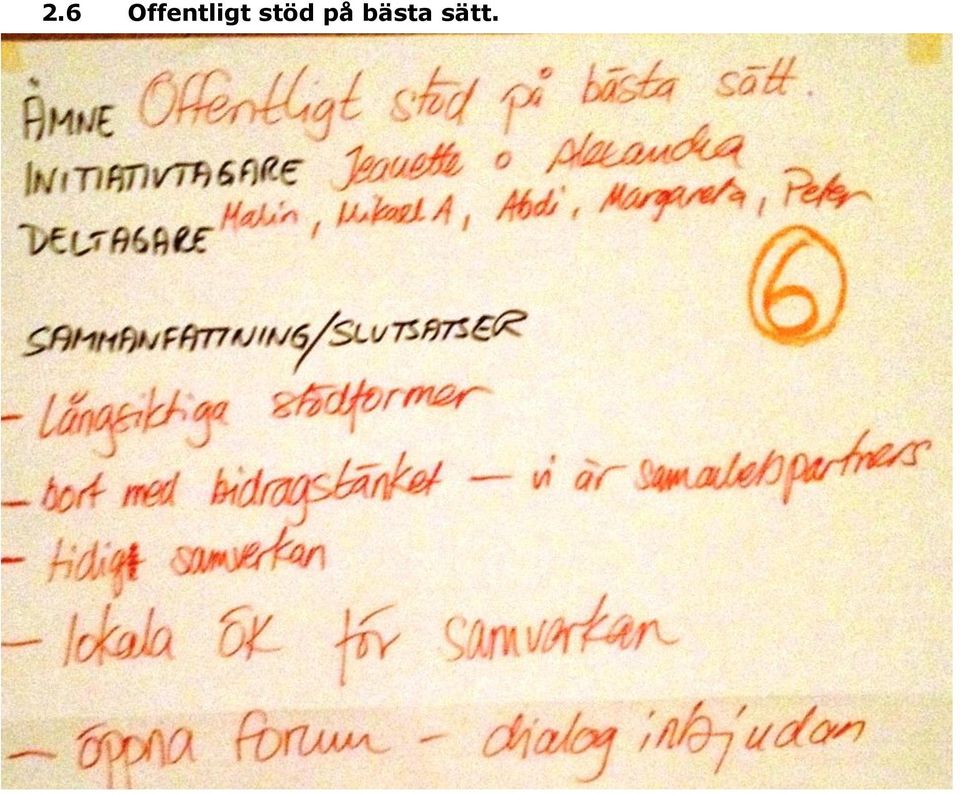 2.6 Offentligt stöd på bästa sätt.
ÄMNE Offentligt stöd på bästa sätt.
INITIATIVTAGARE Jeanette o Alexandra
DELTAGARE Malin, Mikael A, Abdi, Margareta, Peter
6
SAMMANFATTNING/SLUTSATSER
- Långsiktiga stödformer
- bort med bidragstänket - vi är samarbetspartners
- tidigt samverkan
- lokala ÖK för samverkan
- öppna forum - dialog inbjudan